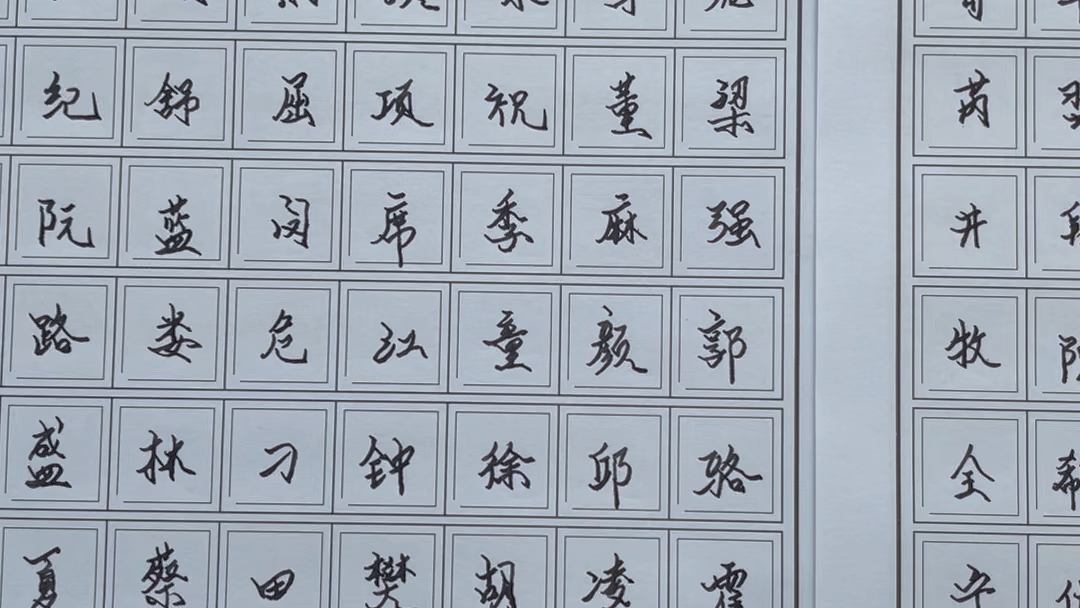 纪舒屈项祝董梁
阮蓝闵席季麻强
路娄危江童颜郭
盛林刁钟徐邱骆
夏蔡田樊胡凌霍
芮
井
牧
全